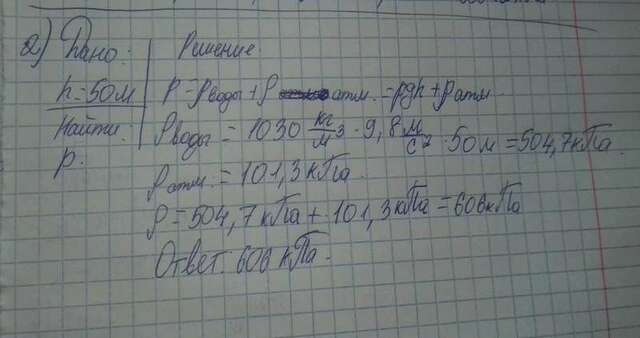 2) Дано:
h=50м
Найти:
р.
Решение
Р=Рводы+Р атм.=ρgh+Ратм.
Рводы = 1030 кг/м3 · 9,8 м/с2 · 50м =504,7кПа.
Ратм. = 101,3кПа.
Р=504,7кПа+101,3кПа=606кПа
Ответ: 606 кПа.